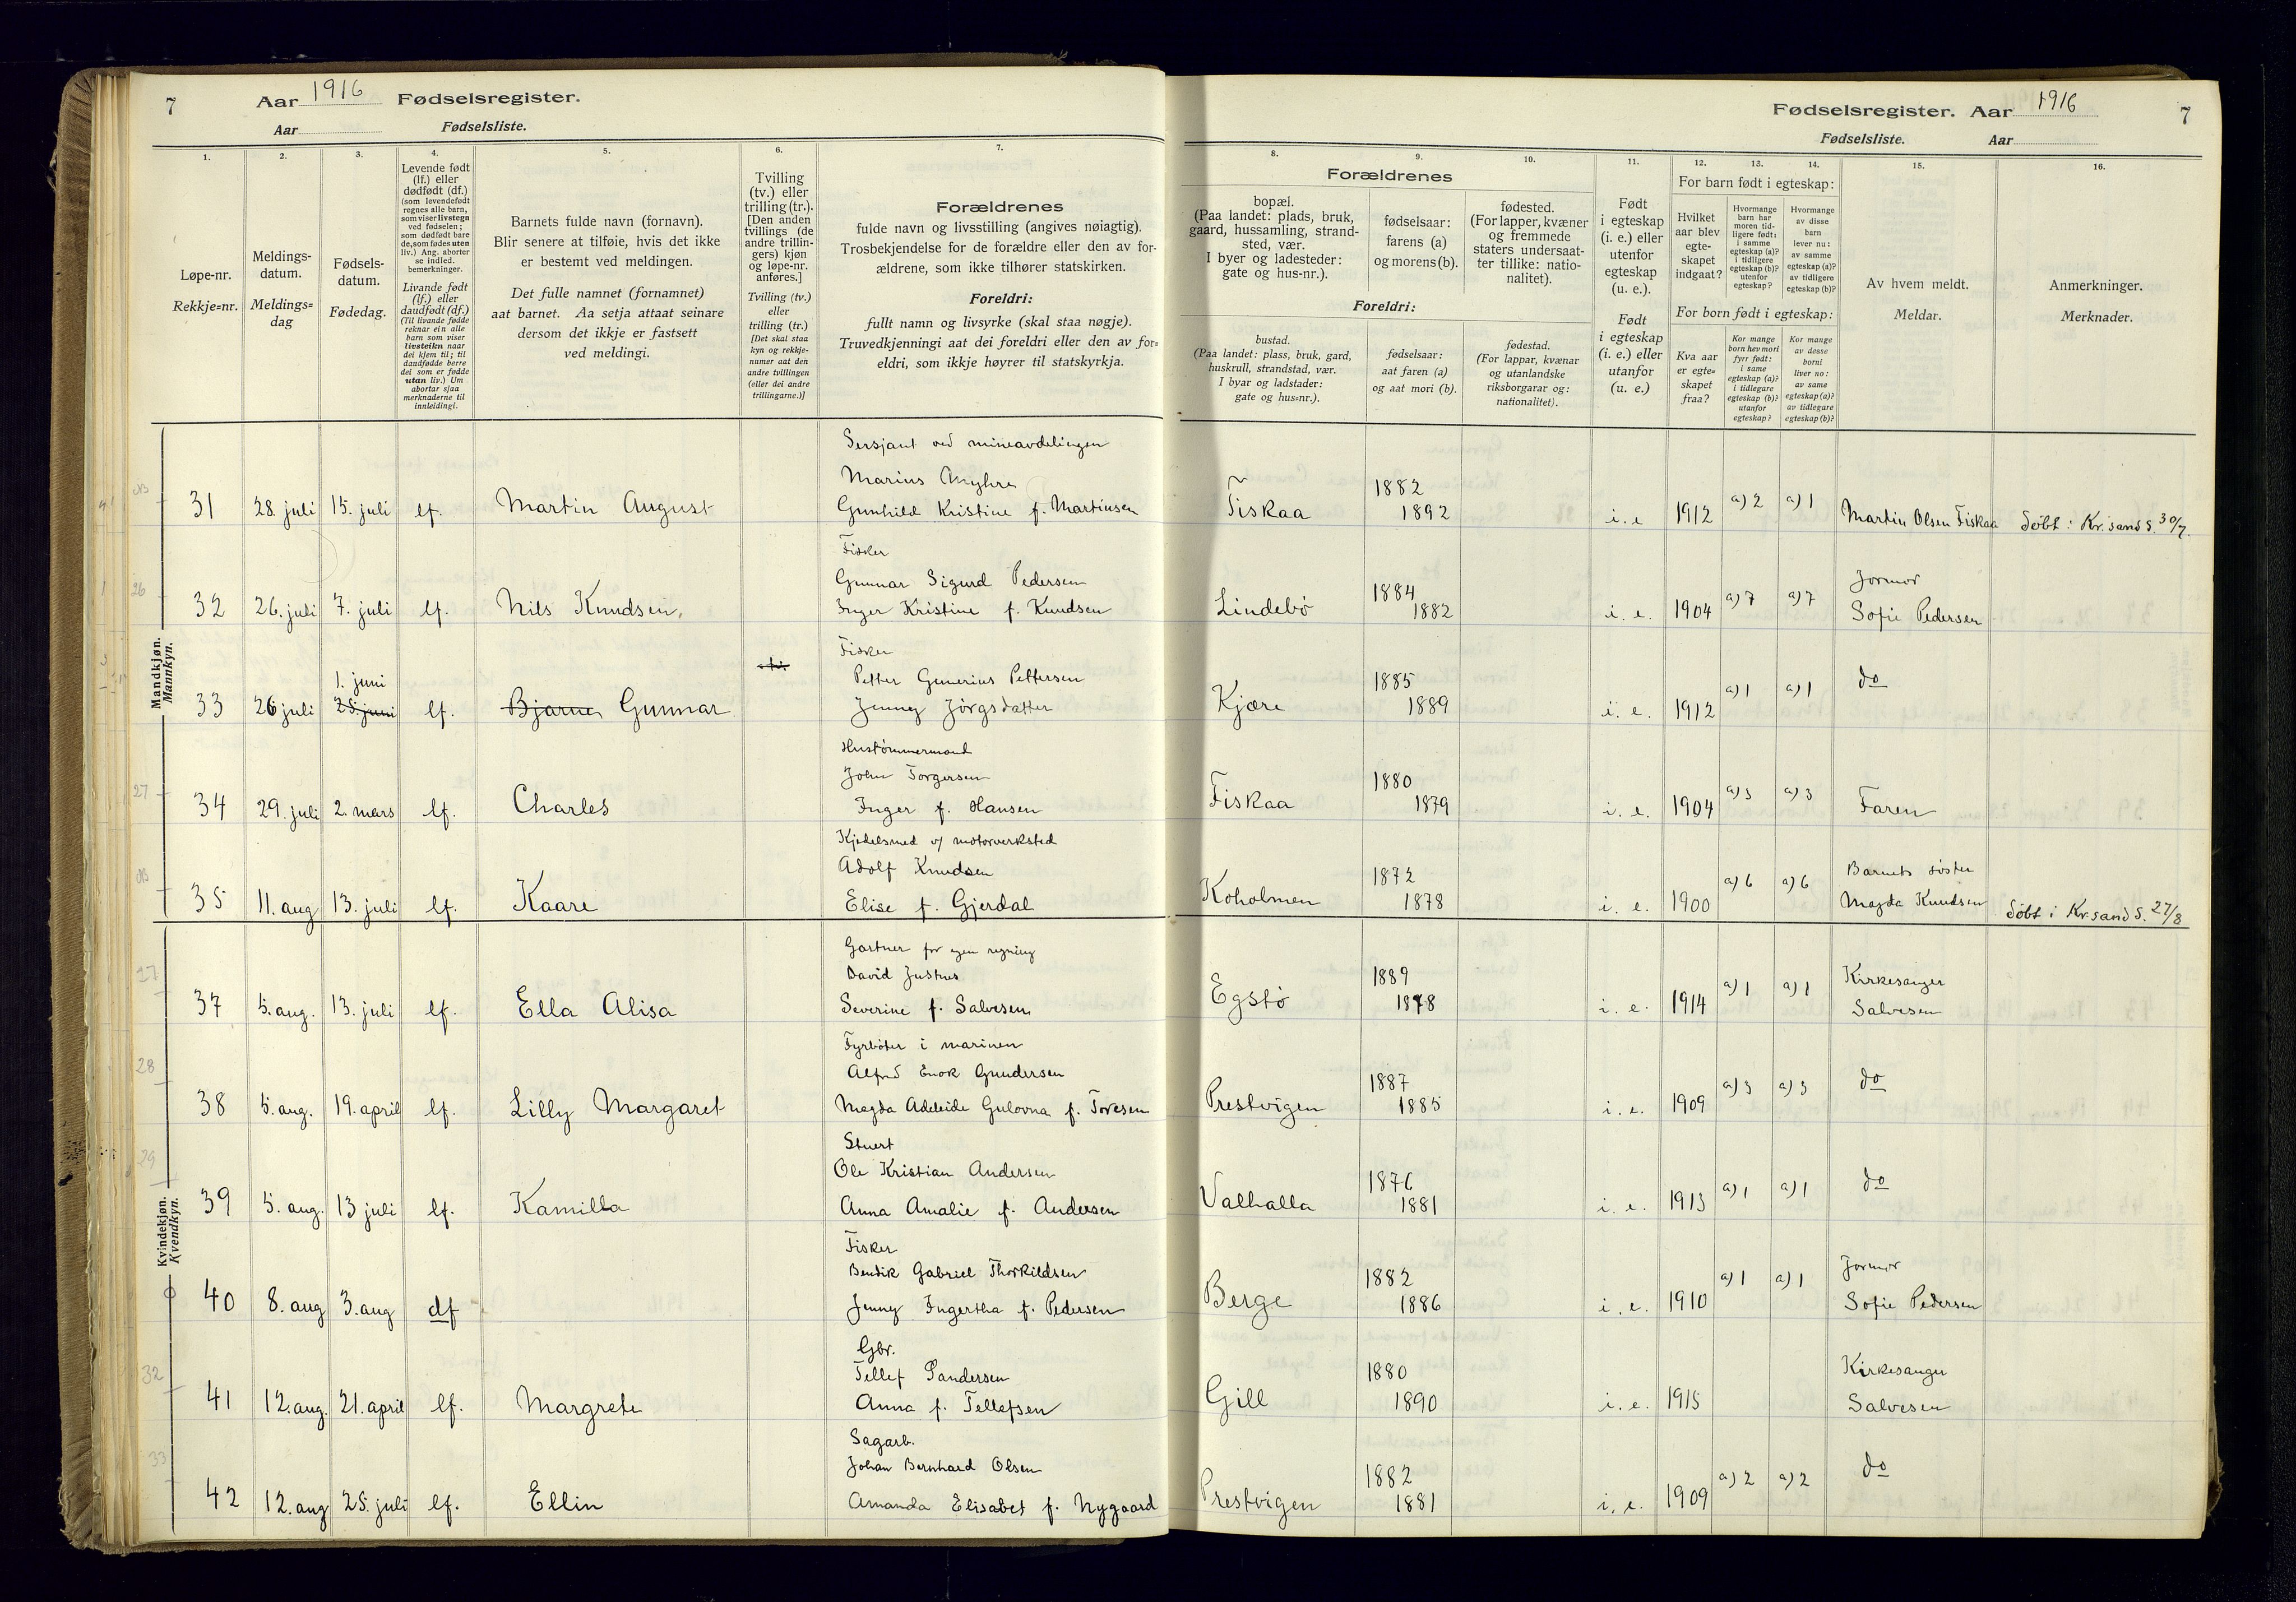 7
Aar 1916 Fødselsregister.
Aar Fødselsliste.
1.
2.
3.
4.
5.
6.
7.
Løpe-nr.
Rekkje=nr.
Meldings-
datum.
Meldings=
dag
Fødsels-
datum.
Fødedag.
Levende født
(lf.) eller
dødfødt (df.)
(som levendefødt
regnes alle barn,
som viser livstegn
ved fødselen;
som dødfødt bare
de, som fødes uten
liv.) Ang. aborter
se indled.
bemerkninger.
Livande født
(lf.) eller
daudfødt (df.)
(Til livande fødde
reknar ein alle
barn som viser
livsteikn naar
dei kjem til; til
daudfødde berre
dei som er fødde
utan liv.) Um
abortar sjaa
merknaderne til
innleidingi.
Barnets fulde navn (fornavn).
Blir senere at tilføie, hvis det ikke
er bestemt ved meldingen.
Det fulle namnet (fornamnet)
aat barnet. Aa setja attaat seinare
dersom det ikkje er fastsett
ved meldingi.
Tvilling
(tv.) eller
trilling (tr.).
[Den anden
tvillings (de
andre trillin-
gers) kjøn
og løpe-nr.
anføres.]
Tvilling (tv.)
eller
trilling (tr.)
[Det skal staa
kyn og rekkje-
numer aat den
andre tvillingen
(eller dei andre
trillingarne.)]
Forældrenes
fulde navn og livsstilling (angives nøiagtig).
Trosbekjendelse for de forældre eller den av for-
ældrene, som ikke tilhører statskirken.
Foreldri:
fullt namn og livsyrke (skal staa nøgje).
Truvedkjenningi aat dei foreldri eller den av for=
eldri, som ikkje høyrer til statskyrkja.
Mandkjøn.
Mannkyn.
Sersjant ved mineavdelingen
Marius Myhre
31 28. juli 15. juli lf. Martin August Gunhild Kristine f. Martinsen
Fisker
Gunnar Sigurd Pedersen
26
32 26. juli 7. juli lf. Nils Knudsen, Inger Kristine f. Knudsen
Fisker
1. juni Petter Gunerius Pettersen
33 26 juli 25. juni lf. Bjarne Gunnar Jenny Jörgsdatter
Hustömmermand
John Torgersen
27
34 29. juli 2. mars lf. Charles Inger f. Hansen
Kjedelsmed v/ motorverksted
Adolf Knudsen
35 11. aug 13. juli lf. Kaare Elise f. Gjerdal
Kvindekjøn.
Kvendkyn.
Gartner for egen regning
David Justnes
27
37 5. aug. 13. juli lf. Ella Alisa Severine f. Salvesen
Fyrböter i marinen
Alfred Enok Gundersen
28
38 5. aug. 19. april lf. Lilly Margaret Magda Adeleide Gulovna f. Toresen
Stuert
Ole Kristian Andersen
29
39 5. aug. 13 juli lf. Kamilla Anna Amalie f. Andersen
Fisker
Bendik Gabriel Thorkildsen
40 8. aug 3. aug df Jenny Ingertha f. Pedersen
Gbr.
Tellef Sandersen
32
41 12. aug. 21. april lf. Margrete Anna f. Tellefsen
Sagarb.
Johan Bernhard Olsen
33
42 12. aug 25. juli lf. Ellin Amanda Elisabet f. Nygaard
Fødselsregister. Aar 1916
7
Fødselsliste. Aar
8.
9.
10.
11.
12.
13.
14.
15.
16.
Forældrenes
bopæl.
(Paa landet: plads, bruk,
gaard, hussamling, strand-
sted, vær.
I byer og ladesteder:
gate og hus-nr.).
fødselsaar:
farens (a)
og morens (b).
fødested.
(For lapper, kvæner
og fremmede
staters undersaat-
ter tillike: natio-
nalitet).
Foreldri:
bustad.
(Paa landet: plass, bruk, gard,
huskrull, strandstad, vær.
I byar og ladstader:
gate og hus=nr.).
fødselsaar:
aat faren (a)
og aat mori (b).
fødestad.
(For lappar, kvænar
og utanlandske
riksborgarar og:
nationalitet).
Født
i egteskap
(i. e.) eller
utenfor
egteskap
(u. e.).
Født
i egteskap
(i. e.) eller
utanfor
egteskap
(u. e.)
For barn født i egteskap:
Hvilket
aar blev
egte-
skapet
indgaat?
Hvormange
barn har
moren tid-
ligere født:
i samme
egteskap (a)?
i tidligere
egteskap (b)?
utenfor
egteskap?
Hvormange
av disse
barn
lever nu:
av samme
egteskap (a)?
av tidligere
egteskap (b)?
For born født i egteskap:
Kva aar
er egte=
skapet
fraa?
Kor mange
born hev mori
fyrr født:
i same
egteskap (a)?
i tidlegare
egteskap (b)?
utanfor
egteskap?
Kor mange
av desse
borni
liver no:
av same
egteskap (a)?
av tidlegare
egteskap (b)?
Av hvem meldt.
Meldar.
Anmerkninger.
Merknader.
1882
Fiskaa 1892 i. e 1912 a) 2 a) 1 Martin Olsen Fiskaa Döbt i Kr.sand S. 30/7.
1884 Jormor
Lindebö 1882 i. e. 1904 a) 7 a) 7 Sofie Pedersen
1885 do
Kjære 1889 i. e. 1912 a) 1 a) 1
1880
Fiskaa 1879 i. e. 1904 a) 3 a) 3 Faren
1872 Barnets söster
Koholmen 1878 i. e. 1900 a) 6 a) 6 Magda Knudsen Döbt i Kr.sand S. 27/8
1889 Kirkesanger
Egstö 1878 i. e. 1914 a) 1 a) 1 Salvesen
1887 do
Prestvigen 1885 i. e. 1909 a) 3 a) 3
1876 do
Valhalla 1881 i. e. 1913 a) 1 a) 1
1882 Jormor
Berge 1886 i. e. 1910 a) 1 a) 1 Sofie Pedersen
1880 Kirkesanger
Gill 1890 i. e. 1915 Salvesen
1882 do
Prestvigen 1881 i. e. 1909 a) 2 a) 2